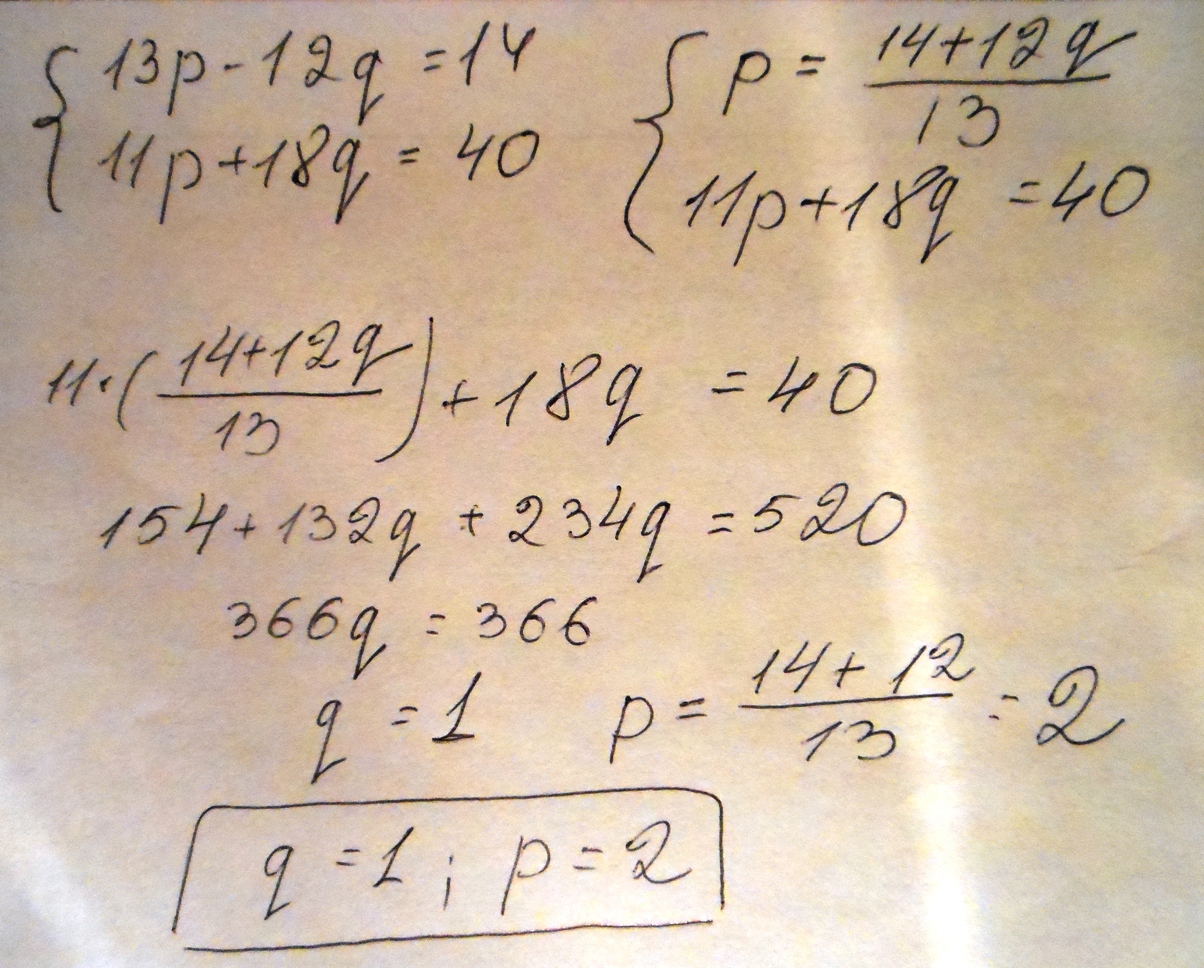 { 13p - 12q = 14
11p + 18q = 40
{ p = (14 + 12q)/13
11p + 18q = 40
11 · ((14 + 12q)/13) + 18q = 40
154 + 132q + 234q = 520
366q = 366
q = 1 p = (14 + 12)/13 = 2
q = 1 ; p = 2